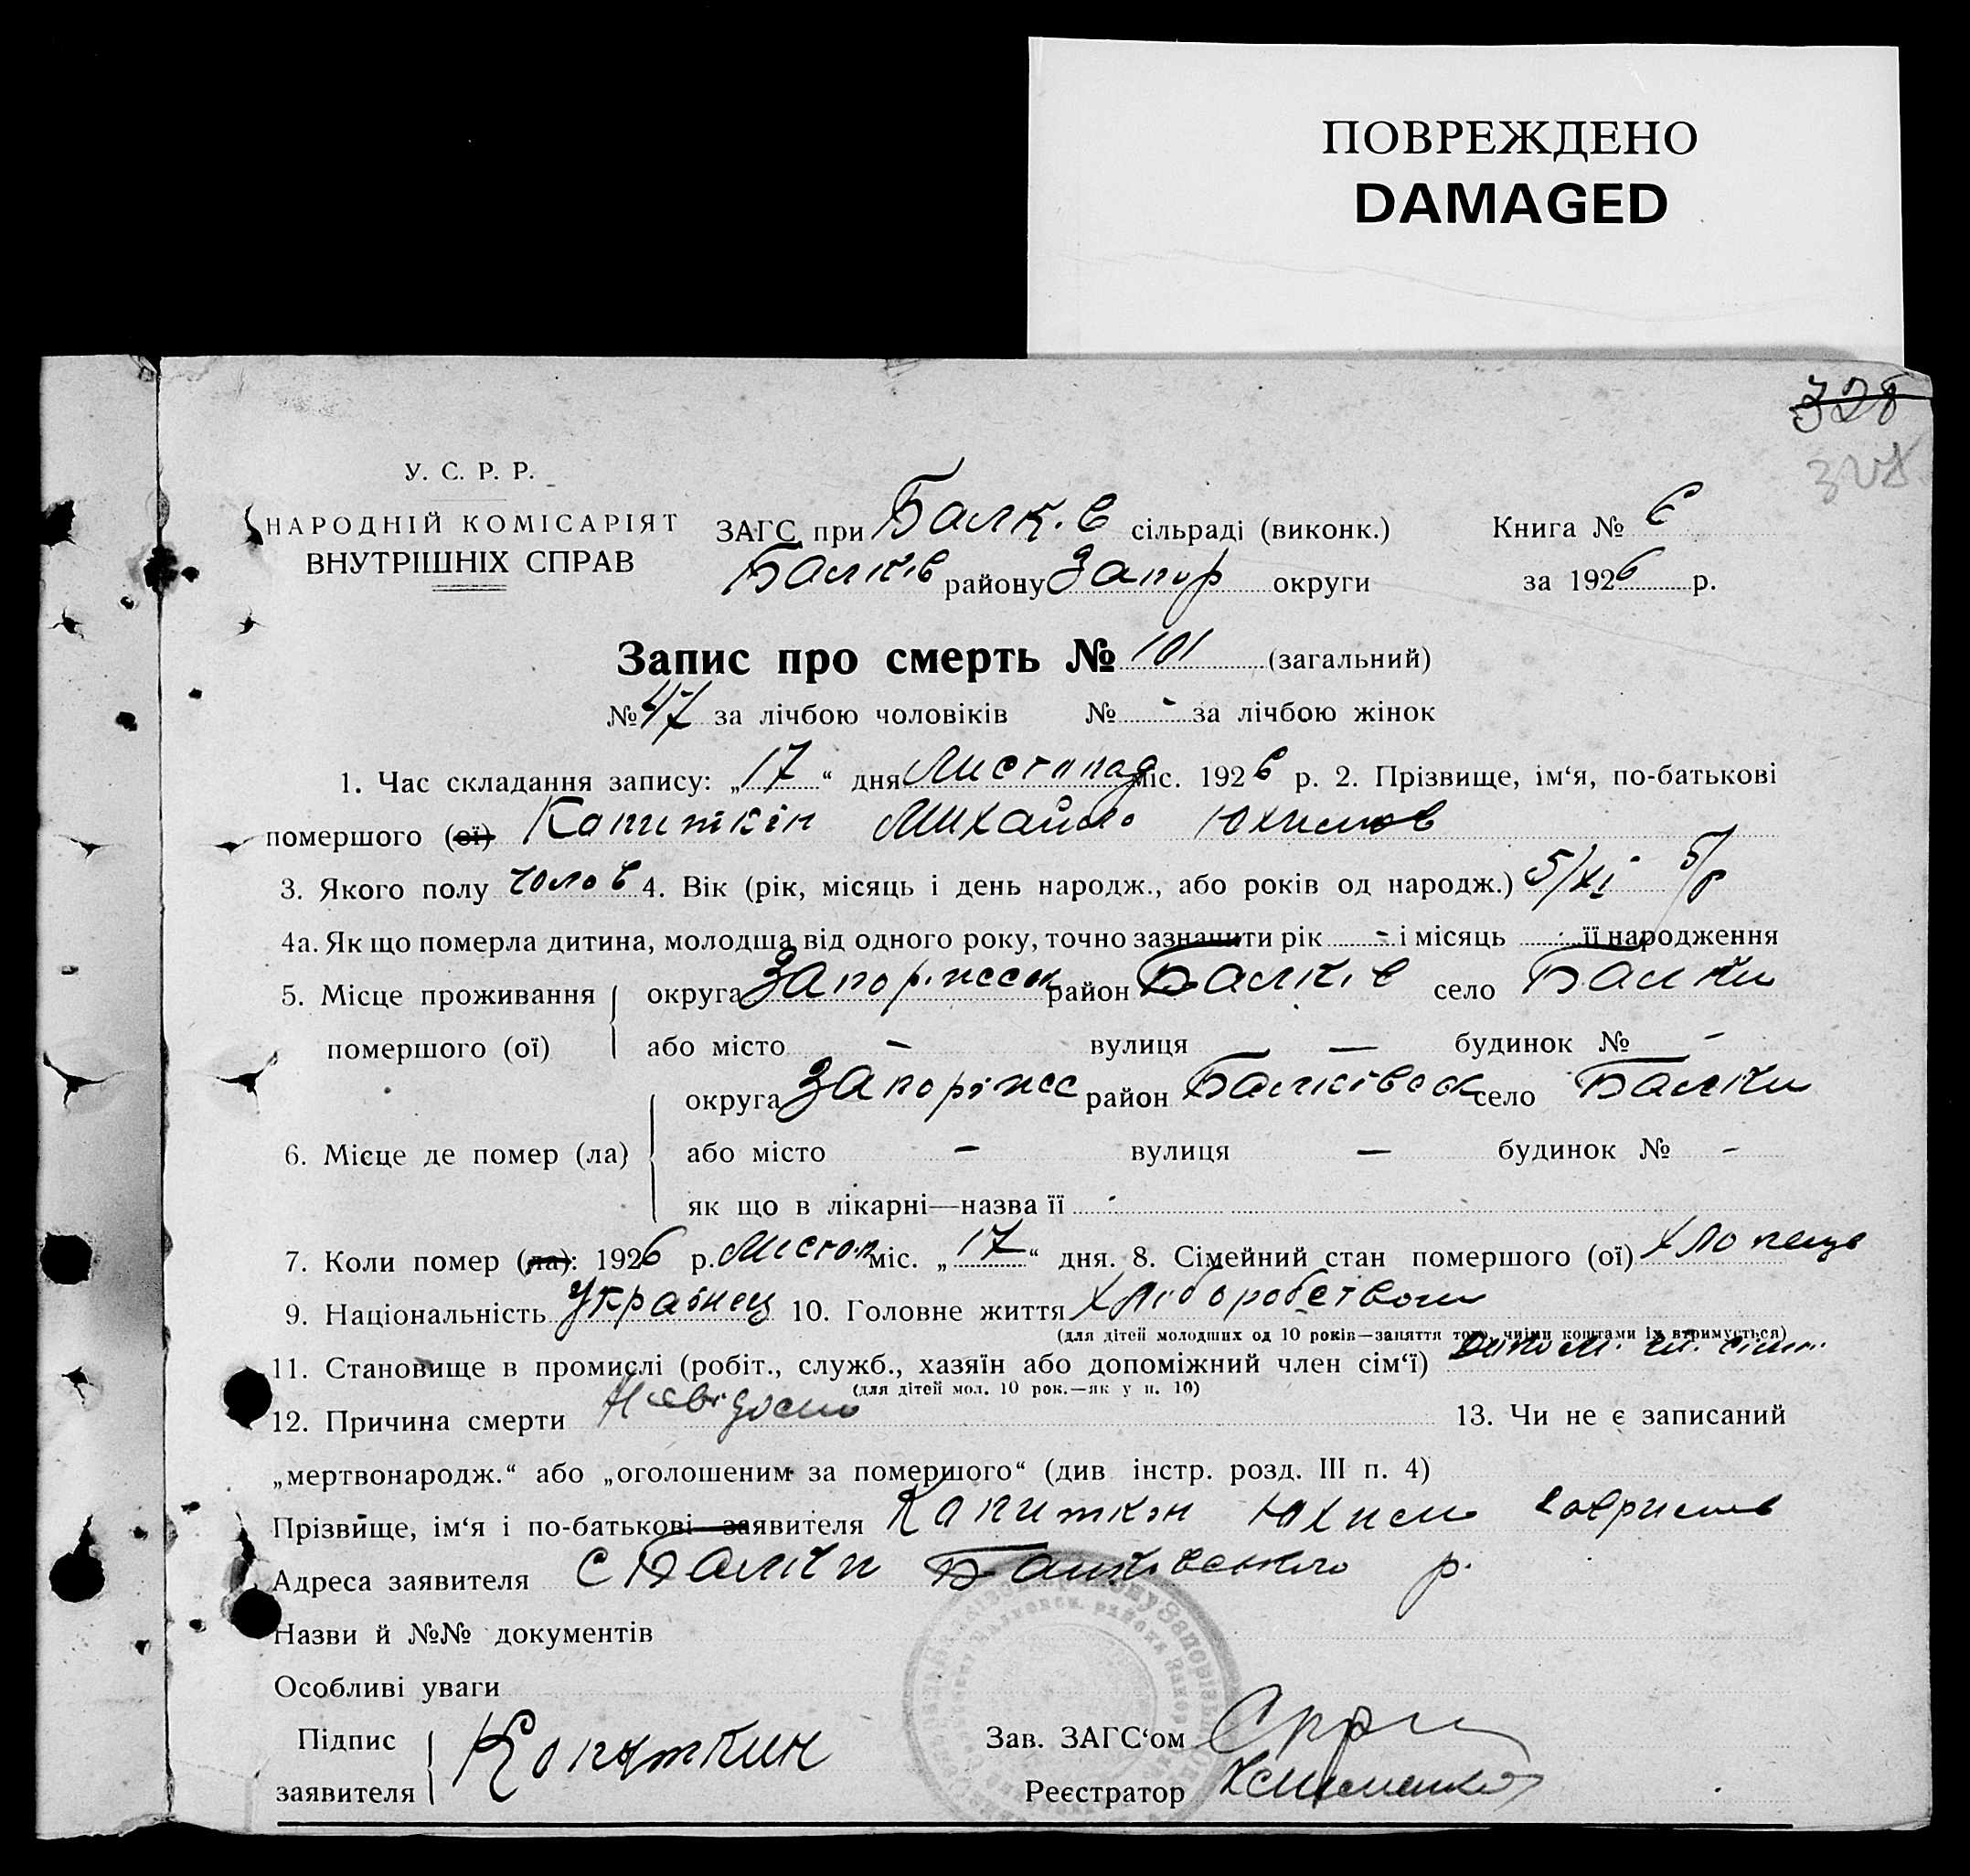 ПОВРЕЖДЕНО
DAMAGED
328
328
У. С. Р. Р.
НАРОДНІЙ КОМІСАРІЯТ
ВНУТРІШНІХ СПРАВ
ЗАГС при Балк.в сільраді (виконк.) Книга № 6
Балків району Запор округи за 1926 р.
Запис про смерть № 101 (загальний)
№ 47 за лічбою чоловіків № - за лічбою жінок
1. Час складання запису: „17“ дня Листопад міс. 1926 р. 2. Прізвище, ім‘я, по-батькові
помершого (ої) Капиткін Михайло Юхимов
3. Якого полу чолов 4. Вік (рік, місяць і день народж., або років од народж.) 5/XI 5/р
4а. Як що померла дитина, молодша від одного року, точно зазначити рік - і місяць - її народження
5. Місце проживання округа Запоріжськ район Балків село Балки
помершого (ої) або місто - вулиця — будинок № -
округа Запоріжс район Балківськ село Балки
6. Місце де помер (ла) або місто - вулиця — будинок № -
як що в лікарні—назва її
7. Коли помер (ла): 1926 р. Листоп міс. „17“ дня. 8. Сімейний стан помершого (ої) хлопець
9. Національність Українец 10. Головне життя Хліборобством
(для дітей молодших од 10 років—заняття того, чиїми коштами їх втримується)
11. Становище в промислі (робіт., служб., хазяїн або допоміжний член сім‘ї) допом. чл. сім.
(для дітей мол. 10 рок.—як у п. 10)
12. Причина смерти Невідомо 13. Чи не є записаний
„мертвонародж.“ або „оголошеним за помершого“ (див інстр. розд. III п. 4)
Прізвище, ім‘я і по-батькові заявителя Капиткін Юхим Гаврилов
Адреса заявителя с Балки Балківського р.
Назви й №№ документів
Особливі уваги
Підпис заявителя Капиткин
Зав. ЗАГС‘ом
Реєстратор Клименко